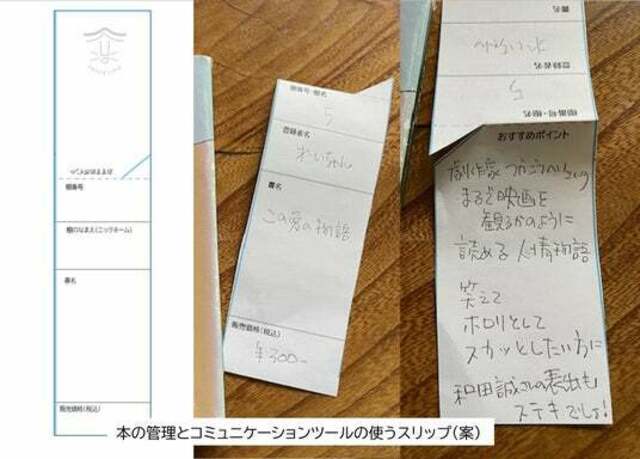 棚番号
棚のなまえ(ニックネーム)
書名
販売価格(税込)
棚番号・棚名
5
登録者名
書名
この男の物語
販売価格(税込)
¥300-
書名
登録者名
棚番号・棚名
5
おすすめポイント
劇作家
まるで映画を
観るかのように
読める人情物語
笑えて
ホロリとして
スカッとしたい方に
和田誠さんの表出も
ステキでしょ!
本の管理とコミュニケーションツールの使うスリップ(案)